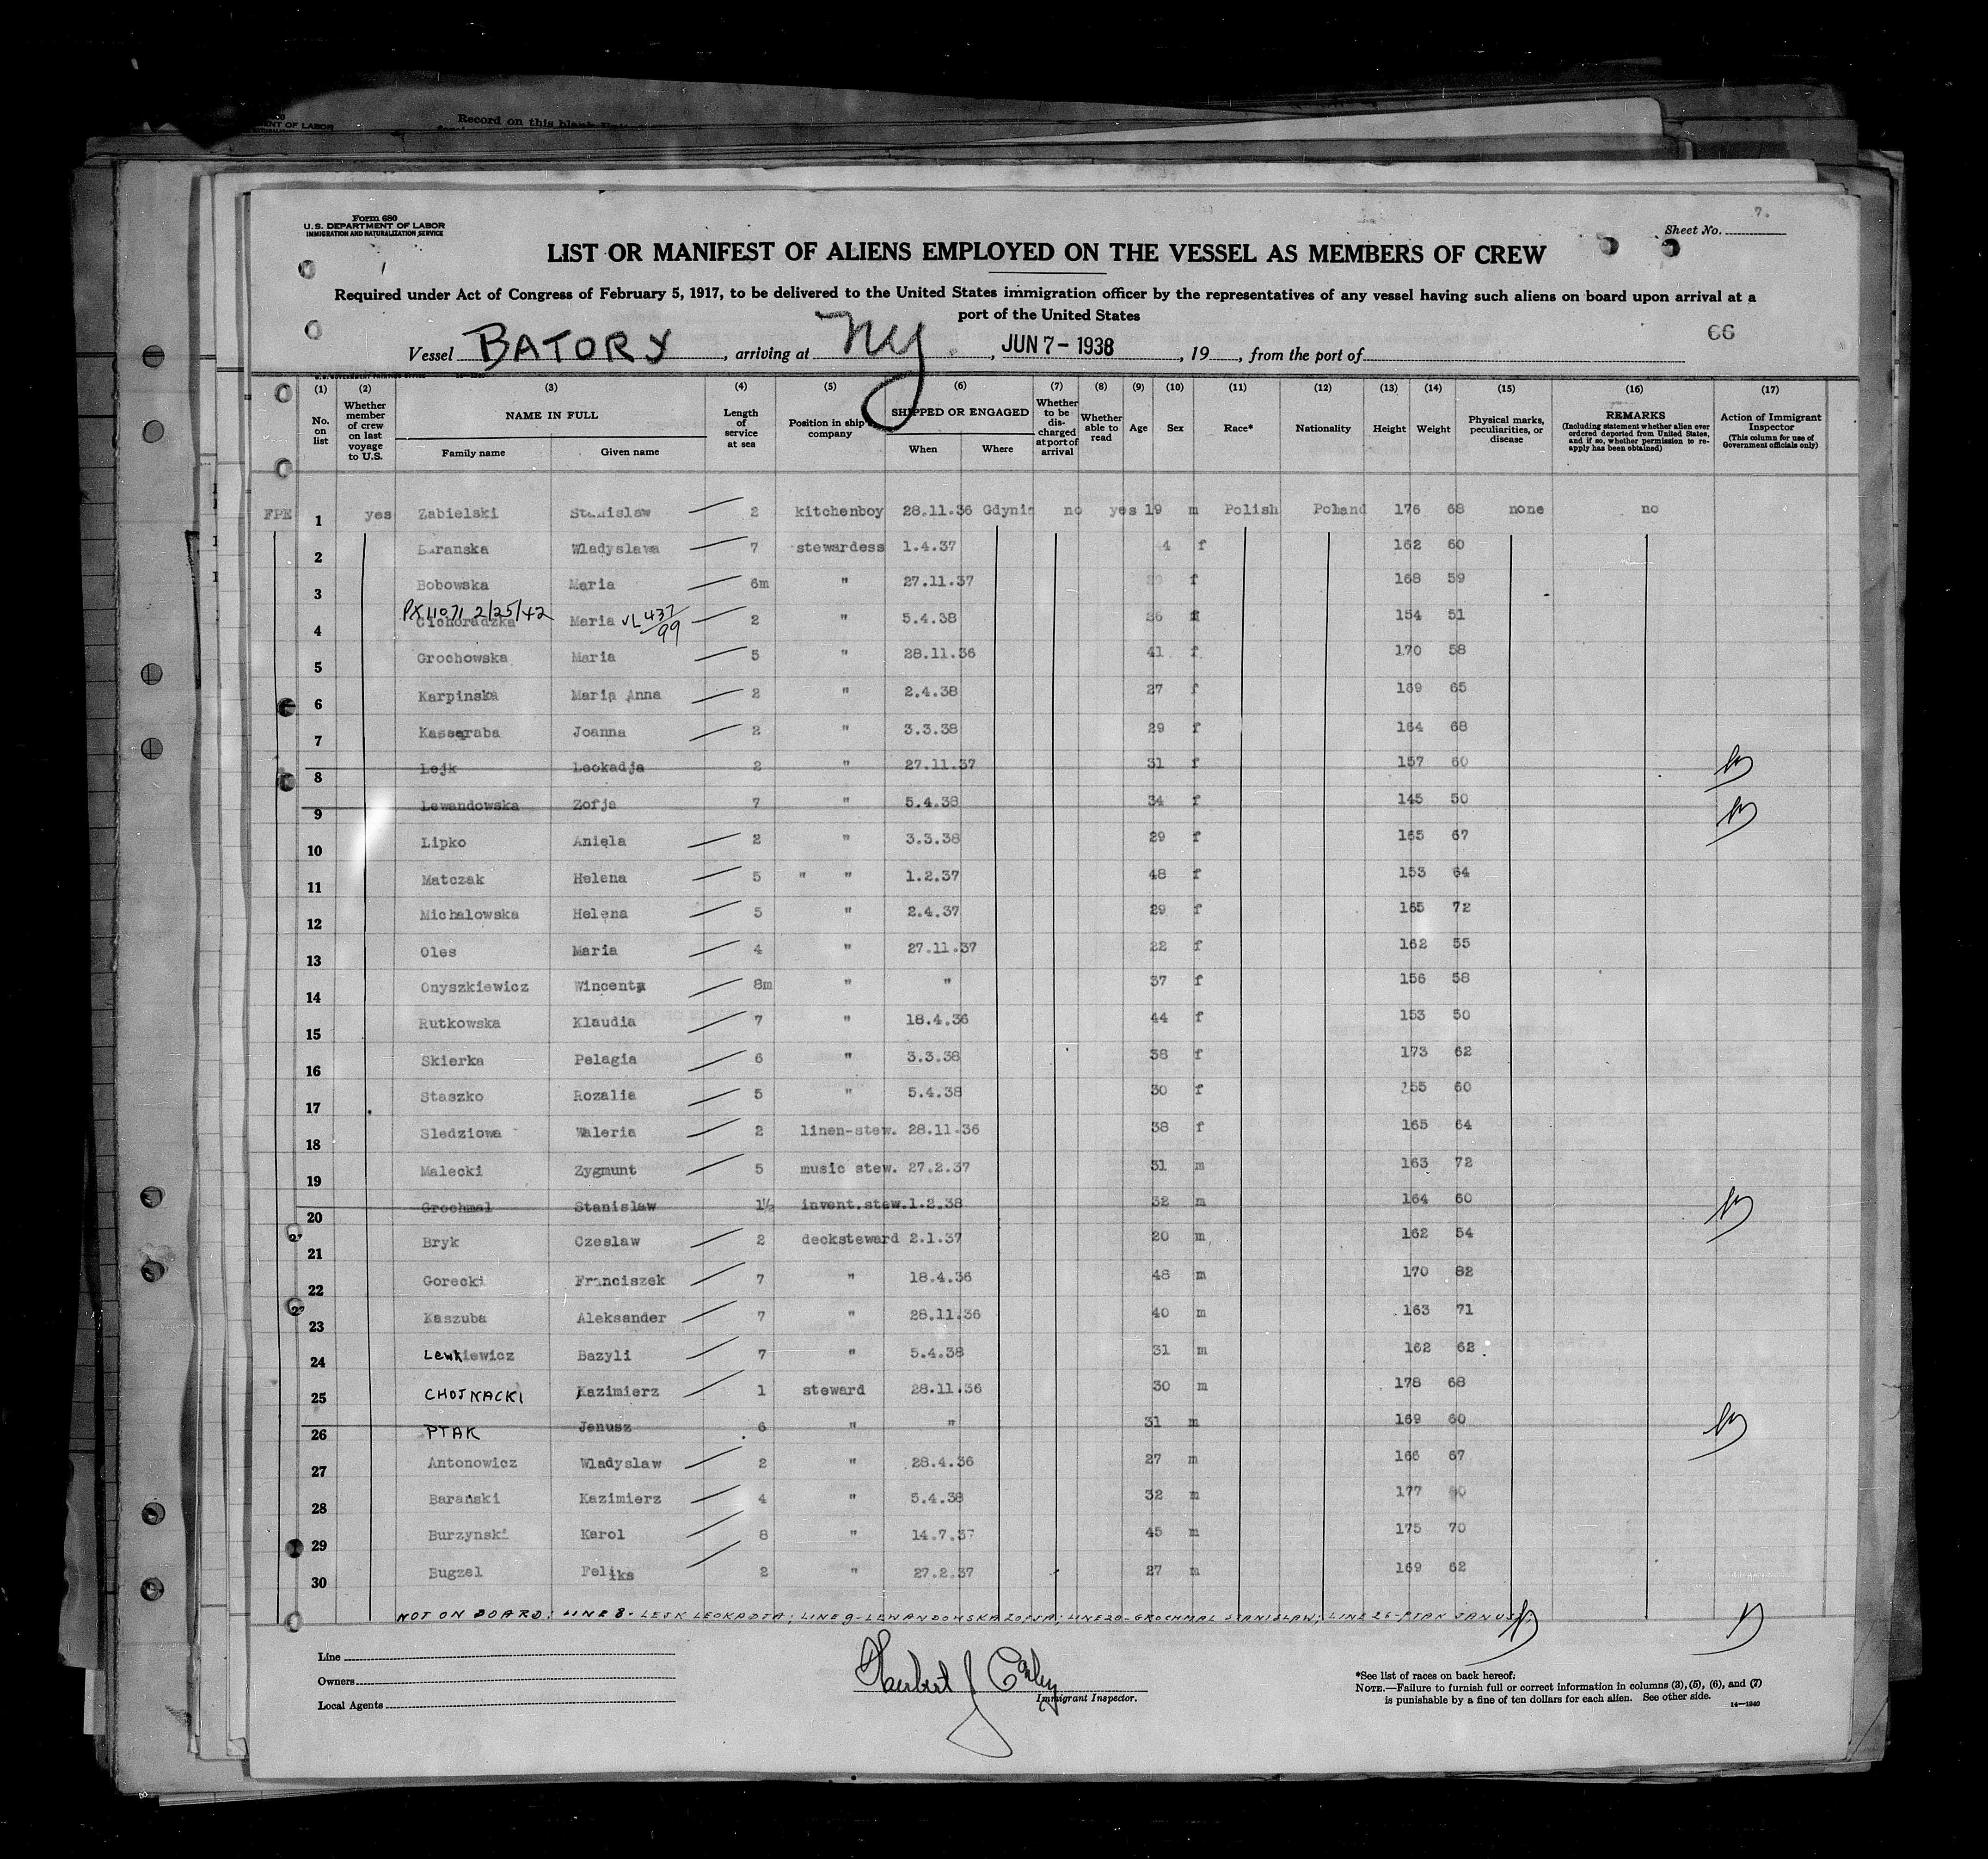 Record on this blank
OF LABOR
7.
Form 680
U.S. DEPARTMENT OF LABOR
IMMIGRATION AND NATURALIZATION SERVICE
Sheet No.
LIST OR MANIFEST OF ALIENS EMPLOYED ON THE VESSEL AS MEMBERS OF CREW
Required under Act of Congress of February 5, 1917, to be delivered to the United States immigration officer by the representatives of any vessel having such aliens on board upon arrival at a
port of the United States
66
Vessel BATORY, arriving at NY., JUN 7 - 1938, 19, from the port of
(1) (2) (3) (4) (5) (6) (7) (8) (9) (10) (11) (12) (13) (14) (15) (16) (17)
No. on list
Whether member of crew on last voyage to U.S.
NAME IN FULL
Family name Given name
Length of service at sea
Position in ship company
SHIPPED OR ENGAGED
When Where
Whether to be discharged at port of arrival
Whether able to read
Age
Sex
Race*
Nationality
Height
Weight
Physical marks, peculiarities, or disease
REMARKS
(Including statement whether alien ever ordered deported from United States, and if so, whether permission to reapply has been obtained)
Action of Immigrant Inspector
(This column for use of Government officials only)
FPE 1 yes Zabielski Stanislaw 2 kitchenboy 28.11.36 Gdynia no yes 19 m Polish Poland 176 68 none no
2 Baranska Wladyslawa 7 stewardess 1.4.37 4 f 162 60
3 Bobowska Maria 6m " 27.11.37 f 168 59
PX 11071 2/25/42
4 Cichoradzka Maria VL 437/99 2 " 5.4.38 26 f 154 51
5 Grochowska Maria 5 " 28.11.36 41 f 170 58
6 Karpinska Maria Anna 2 " 2.4.38 27 f 169 65
7 Kasseraba Joanna 2 " 3.3.38 29 f 164 68
8 Lejk Leokadja 2 " 27.11.37 31 f 157 60
9 Lewandowska Zofja 7 " 5.4.38 34 f 145 50
10 Lipko Aniela 2 " 3.3.38 29 f 165 67
11 Matczak Helena 5 " " 1.2.37 48 f 153 64
12 Michalowska Helena 5 " 2.4.37 29 f 165 72
13 Oles Maria 4 " 27.11.37 22 f 162 55
14 Onyszkiewicz Wincenta 8m " " 37 f 156 58
15 Rutkowska Klaudia 7 " 18.4.36 44 f 153 50
16 Skierka Pelagia 6 " 3.3.38 38 f 173 62
17 Staszko Rozalia 5 " 5.4.38 30 f 155 60
18 Sledziowa Waleria 2 linen-stew. 28.11.36 38 f 165 64
19 Malecki Zygmunt 5 music stew. 27.2.37 31 m 163 72
20 Grochmal Stanislaw 1½ invent.stew. 1.2.38 32 m 164 60
21 Bryk Czeslaw 2 decksteward 2.1.37 20 m 162 54
22 Gorecki Franciszek 7 " 18.4.36 48 m 170 82
23 Kaszuba Aleksander 7 " 28.11.36 40 m 163 71
24 Lewkiewicz Bazyli 7 " 5.4.38 31 m 162 62
25 CHOJNACKI Kazimierz 1 steward 28.11.36 30 m 178 68
26 PTAK Janusz 6 " " 31 m 169 60
27 Antonowicz Wladyslaw 2 " 28.4.36 27 m 166 67
28 Baranski Kazimierz 4 " 5.4.38 32 m 177
29 Burzynski Karol 8 " 14.7.37 45 m 175 70
30 Bugzel Feliks 2 " 27.2.37 27 m 169 62
NOT ON BOARD: LINE 8- LEJK LEOKADJA; LINE 9- LEWANDOWSKA ZOFJA; LINE 20- GROCHMAL STANISLAW; LINE 26- PTAK JANUSZ
Line
Owners
Local Agents
Herbert J Conley
Immigrant Inspector.
*See list of races on back hereof.
NOTE.—Failure to furnish full or correct information in columns (3), (5), (6), and (7)
is punishable by a fine of ten dollars for each alien. See other side.
14—1240